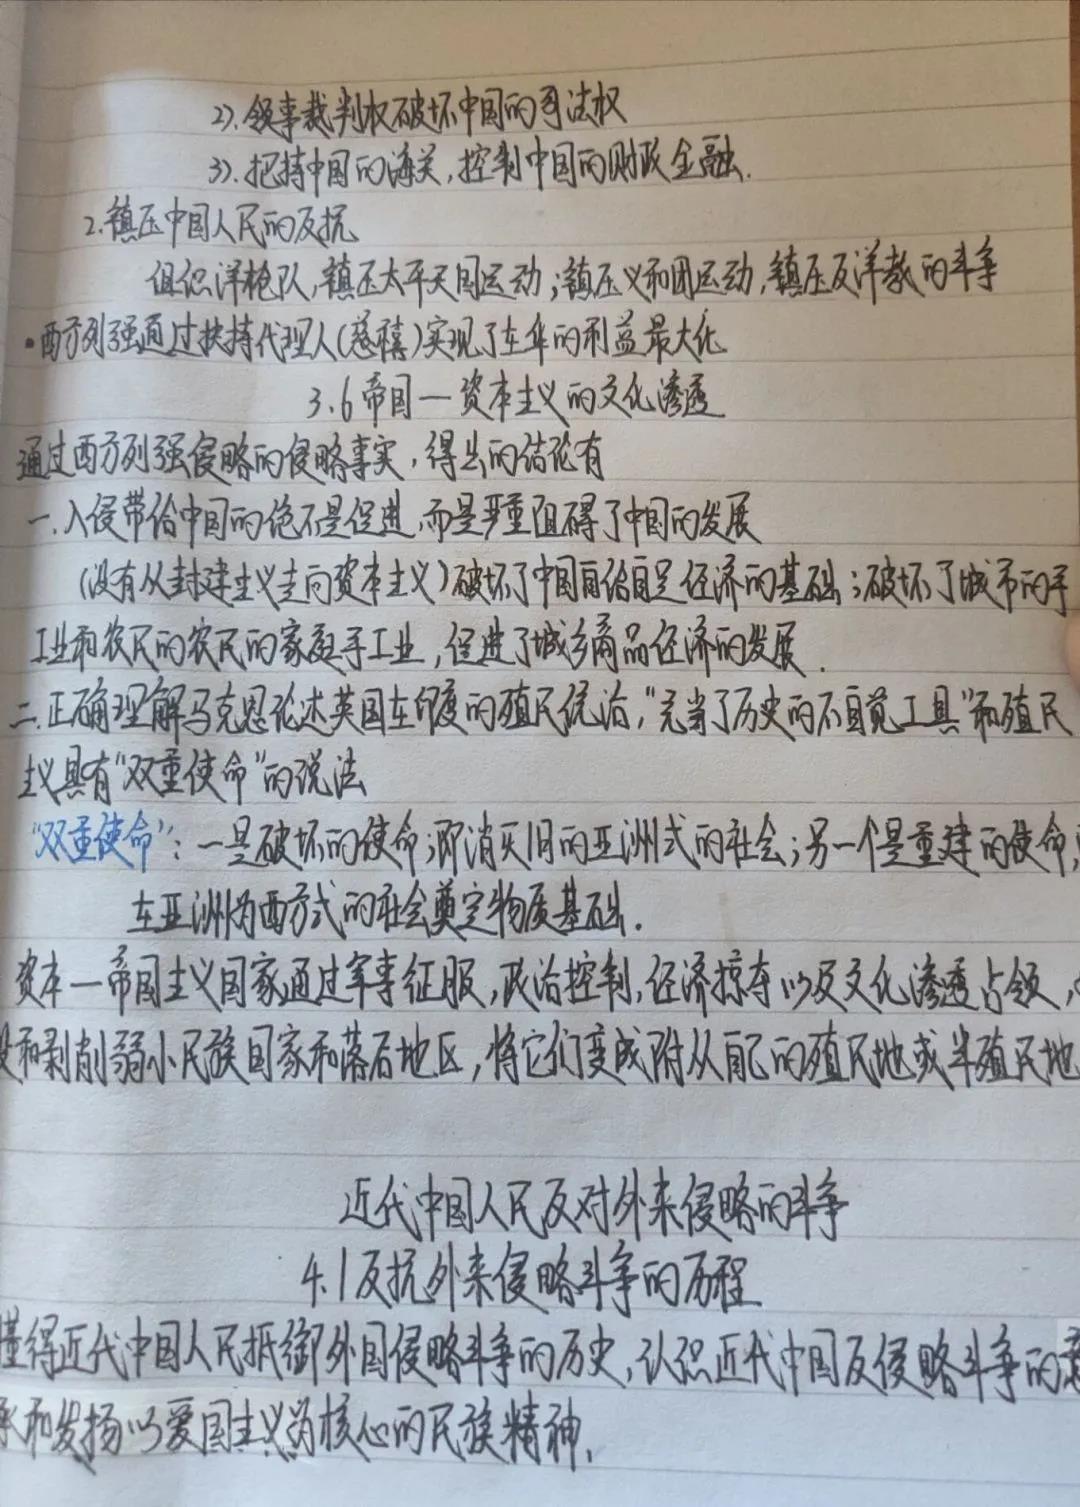 2). 领事裁判权破坏中国的司法权
3). 把持中国的海关,控制中国的财政金融.
2. 镇压中国人民的反抗
组织洋枪队,镇压太平天国运动;镇压义和团运动,镇压反洋教的斗争
·西方列强通过扶持代理人(慈禧)实现了在华的利益最大化
3.6 帝国—资本主义的文化渗透
通过西方列强侵略的侵略事实,得出的结论有
一.入侵带给中国的绝不是促进,而是严重阻碍了中国的发展
(没有从封建主义走向资本主义)破坏了中国自给自足经济的基础;破坏了城市的手
工业和农民的农民的家庭手工业,促进了城乡商品经济的发展.
二.正确理解马克思论述英国在印度的殖民统治,"充当了历史的不自觉工具"和殖民
主义具有"双重使命"的说法
"双重使命":一是破坏的使命;即消灭旧的亚洲式的社会;另一个是重建的使命,
在亚洲为西方式的社会奠定物质基础.
资本—帝国主义国家通过军事征服,政治控制,经济掠夺以及文化渗透占领,
和剥削弱小民族国家和落后地区,将它们变成附从自己的殖民地或半殖民地
近代中国人民反对外来侵略的斗争
4.1 反抗外来侵略斗争的历程
懂得近代中国人民抵御外国侵略斗争的历史,认识近代中国反侵略斗争的意
承和发扬以爱国主义为核心的民族精神,